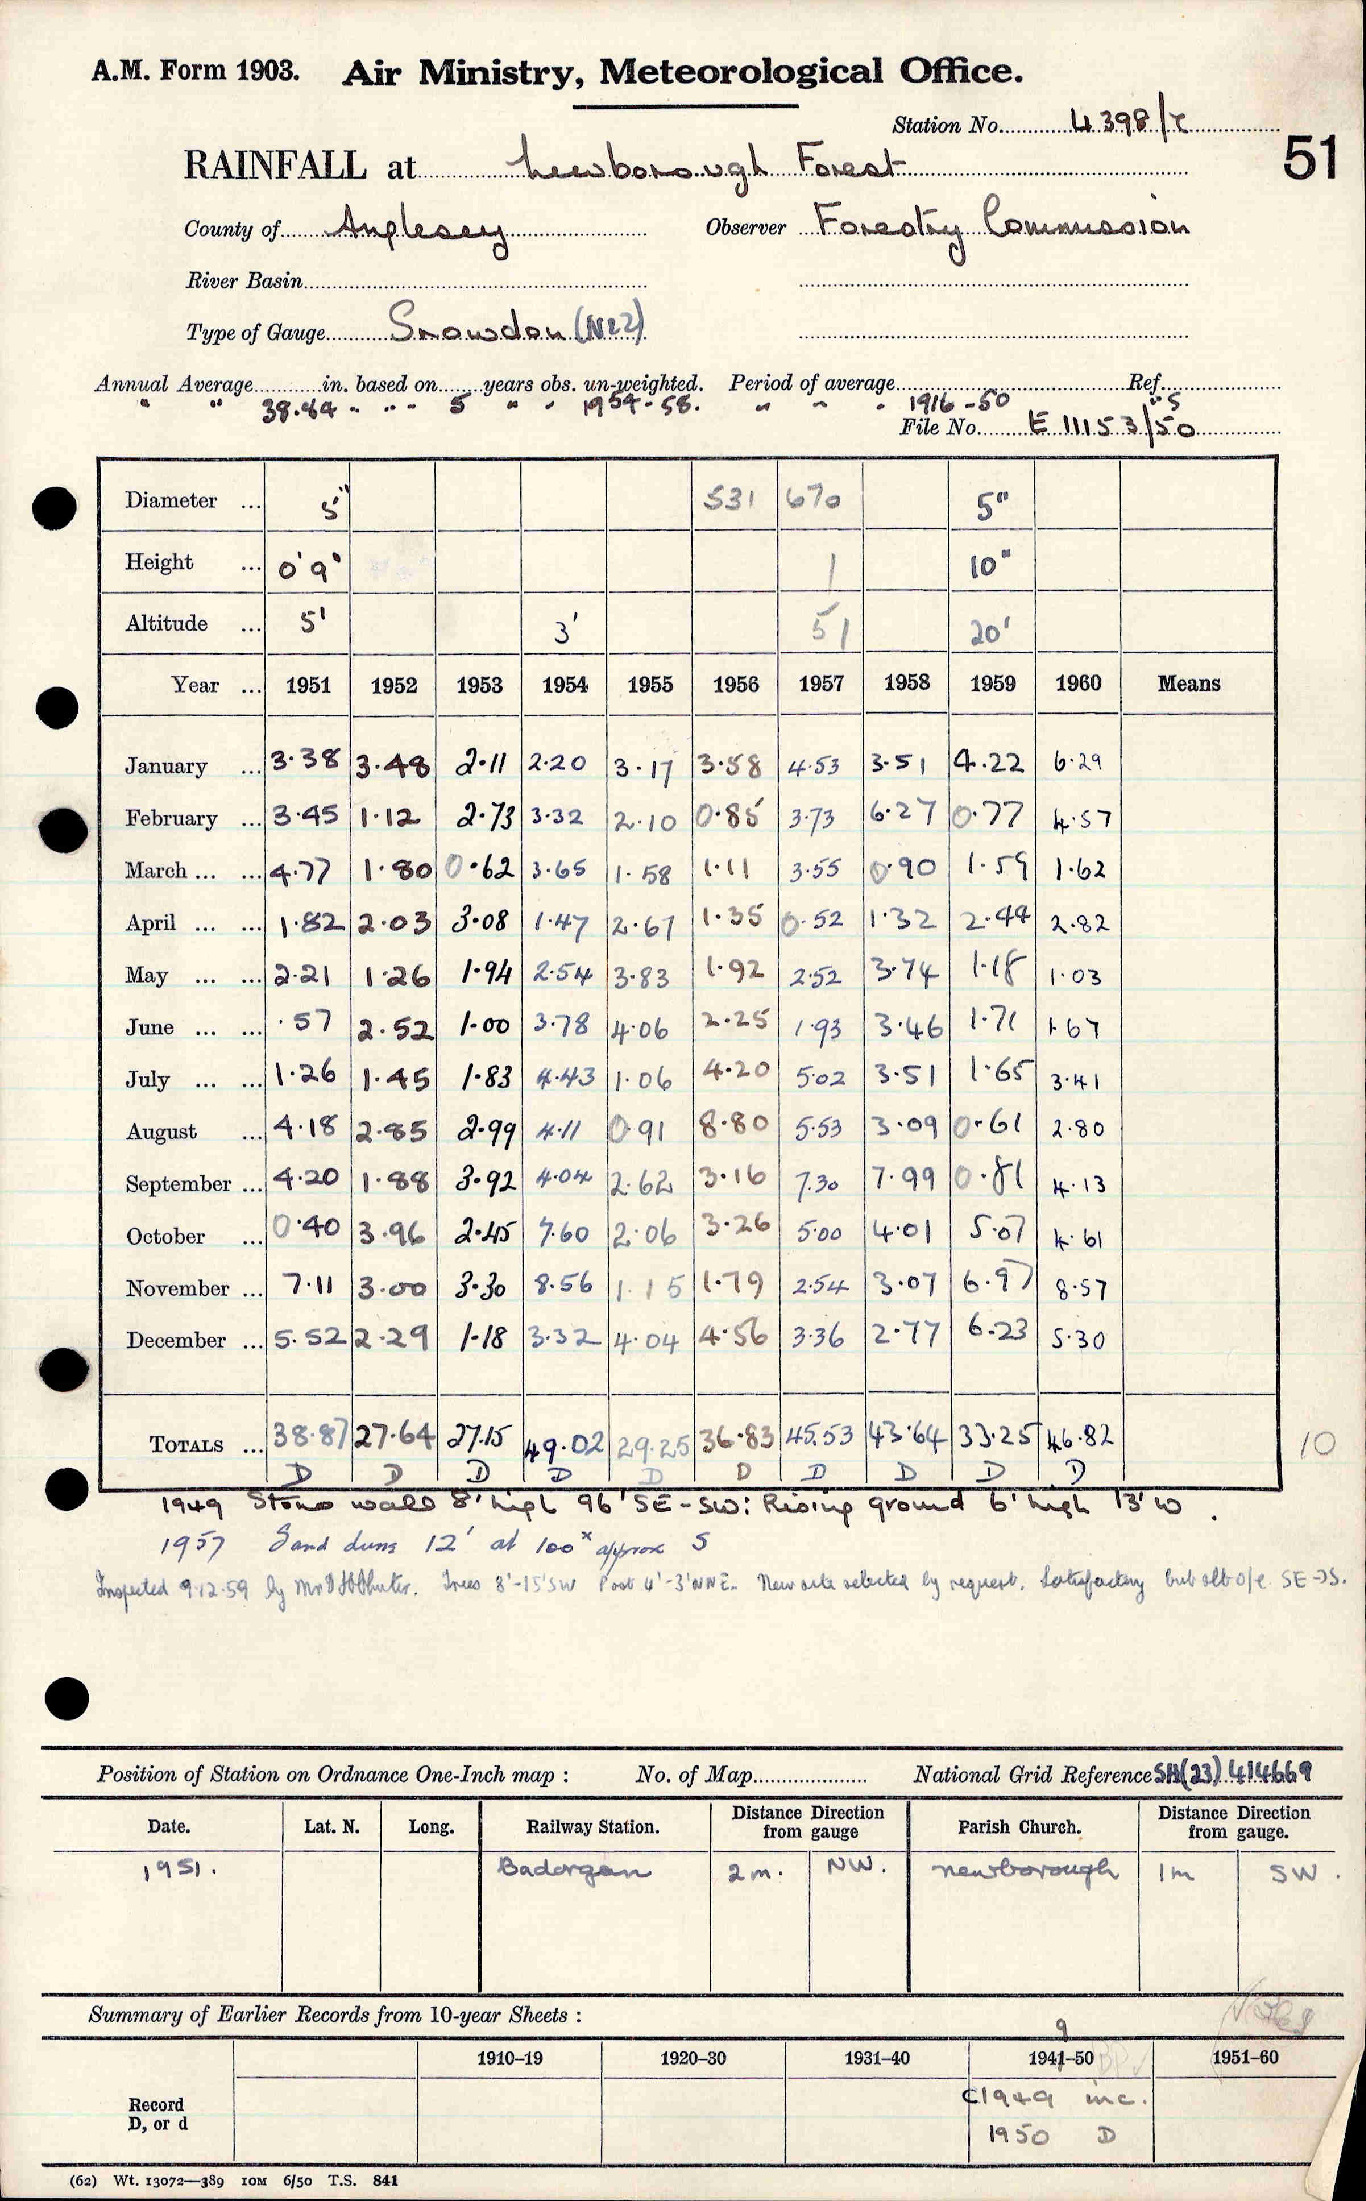 A.M. Form 1903. Air Ministry, Meteorological Office.
Station No. 4398/7
51
RAINFALL at Newborough Forest
County of Anglesey Observer Forestry Commission
River Basin
Type of Gauge Snowdon (Nº2)
Annual Average in. based on years obs. un-weighted. Period of average Ref.
" " 38.84 " " " 5 " " 1954-58. " " " 1916-50 "S
File No. E 11153/50
Diameter ... 5" 531 670 5"
Height ... 0'9" 1 10"
Altitude ... 5' 3' 51 20'
Year ... 1951 1952 1953 1954 1955 1956 1957 1958 1959 1960 Means
January ... 3.38 3.48 2.11 2.20 3.17 3.58 4.53 3.51 4.22 6.29
February ... 3.45 1.12 2.73 3.32 2.10 0.85 3.73 6.27 0.77 4.57
March ... ... 4.77 1.80 0.62 3.65 1.58 1.11 3.55 0.90 1.59 1.62
April ... ... 1.82 2.03 3.08 1.47 2.67 1.35 0.52 1.32 2.44 2.82
May ... ... 2.21 1.26 1.94 2.54 3.83 1.92 2.52 3.74 1.18 1.03
June ... ... .57 2.52 1.00 3.78 4.06 2.25 1.93 3.46 1.71 1.67
July ... ... 1.26 1.45 1.83 4.43 1.06 4.20 5.02 3.51 1.65 3.41
August ... 4.18 2.85 2.99 4.11 0.91 8.80 5.53 3.09 0.61 2.80
September ... 4.20 1.88 3.92 4.04 2.62 3.16 7.30 7.99 0.81 4.13
October ... 0.40 3.96 2.45 7.60 2.06 3.26 5.00 4.01 5.07 4.61
November ... 7.11 3.00 3.30 8.56 1.15 1.79 2.54 3.07 6.97 8.57
December ... 5.52 2.29 1.18 3.32 4.04 4.56 3.36 2.77 6.23 5.30
TOTALS ... 38.87 27.64 27.15 49.02 29.25 36.83 45.53 43.64 33.25 46.82 10
D D D D D D D D D D
1949 Stone wall 8' high 96' SE-SW: Rising ground 6' high 13' W.
1957 Sand dune 12' at 100x approx S
Inspected 9.12.59 by Mr Trees 3'-15'SW Post 4'-3'NNE. New site selected by request. Satisfactory but slt o/e SE->S.
Position of Station on Ordnance One-Inch map : No. of Map National Grid Reference SH(23) 414669
Date. Lat. N. Long. Railway Station. Distance Direction from gauge Parish Church. Distance Direction from gauge.
1951. Bodorgan 2m. NW. Newborough 1m SW.
Summary of Earlier Records from 10-year Sheets :
9
1910–19 1920–30 1931–40 1941–50 1951–60
Record D, or d
C1949 inc.
1950 D
(62) Wt. 13072—389 10M 6/50 T.S. 841